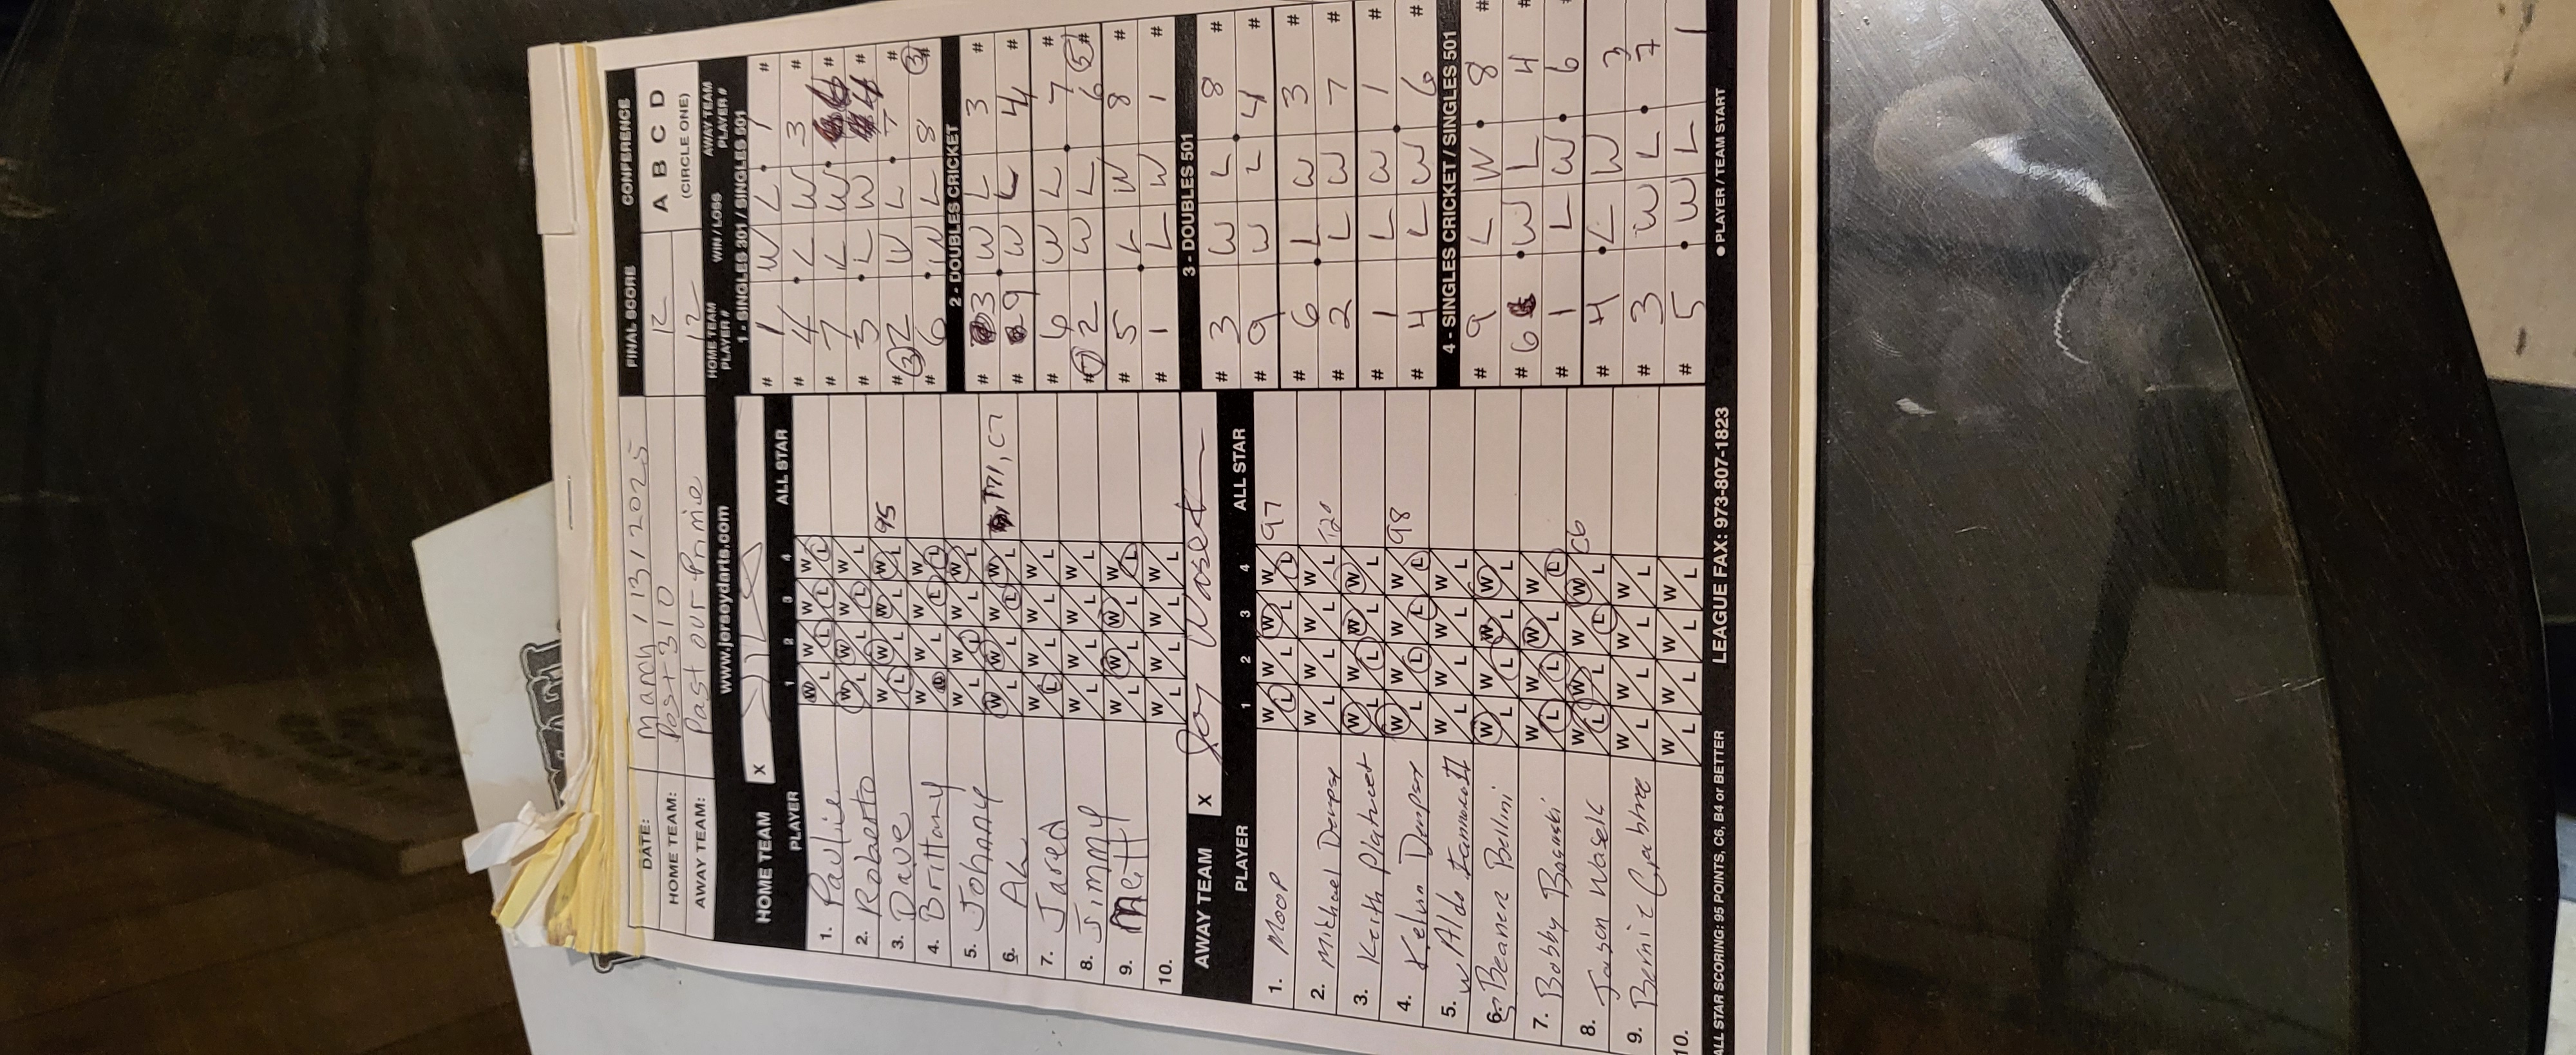 DATE: March / 13 / 2025
HOME TEAM: Post 310
AWAY TEAM: Past our Prime
FINAL SCORE
12
12
CONFERENCE
A B C D
(CIRCLE ONE)
www.jerseydarts.com
HOME TEAM X
PLAYER 1 2 3 4 ALL STAR
1. Paulie W L W L W L W L
2. Roberto W L W L W L W L
3. Dave W L W L W L W L 95
4. Brittany W L W L W L W L
5. Johnny W L W L W L W L
6. AL W L W L W L W L
7. Jared W L W L W L W L
8. Jimmy W L W L W L W L
9. Matt W L W L W L W L
10. W L W L W L W L
AWAY TEAM X
PLAYER 1 2 3 4 ALL STAR
1. Moop W L W L W L W L 97
2. Michael W L W L W L W L
3. Keith W L W L W L W L
4. W L W L W L W L 98
5. Aldo W L W L W L W L
6. Beaner Bellini W L W L W L W L
7. Bobby W L W L W L W L
8. Jason Wasek W L W L W L W L C6
9. W L W L W L W L
10. W L W L W L W L
ALL STAR SCORING: 95 POINTS, C6, B4 or BETTER
LEAGUE FAX: 973-807-1823
HOME TEAM PLAYER # WIN / LOSS AWAY TEAM PLAYER #
1 - SINGLES 301 / SINGLES 501
# 1 W L 1 #
# 4 L W 3 #
# 7 L W 6 #
# 5 L W 4 #
# 2 W L 7 #
# 6 W L 8 #
2 - DOUBLES CRICKET
# 3 W L 3 #
# 9 W L 4 #
# 6 W L 7 #
# 2 W L 6 #
# 5 L W 8 #
# 1 L W 1 #
3 - DOUBLES 501
# 3 W L 8 #
# 9 W L 4 #
# 6 L W 3 #
# 2 L W 7 #
# 1 L W 1 #
# 4 L W 6 #
4 - SINGLES CRICKET / SINGLES 501
# 9 L W 8 #
# 6 W L 4 #
# 1 L W 6
# 4 L W 3
# 3 W L 7
# 5 W L 1
● PLAYER / TEAM START